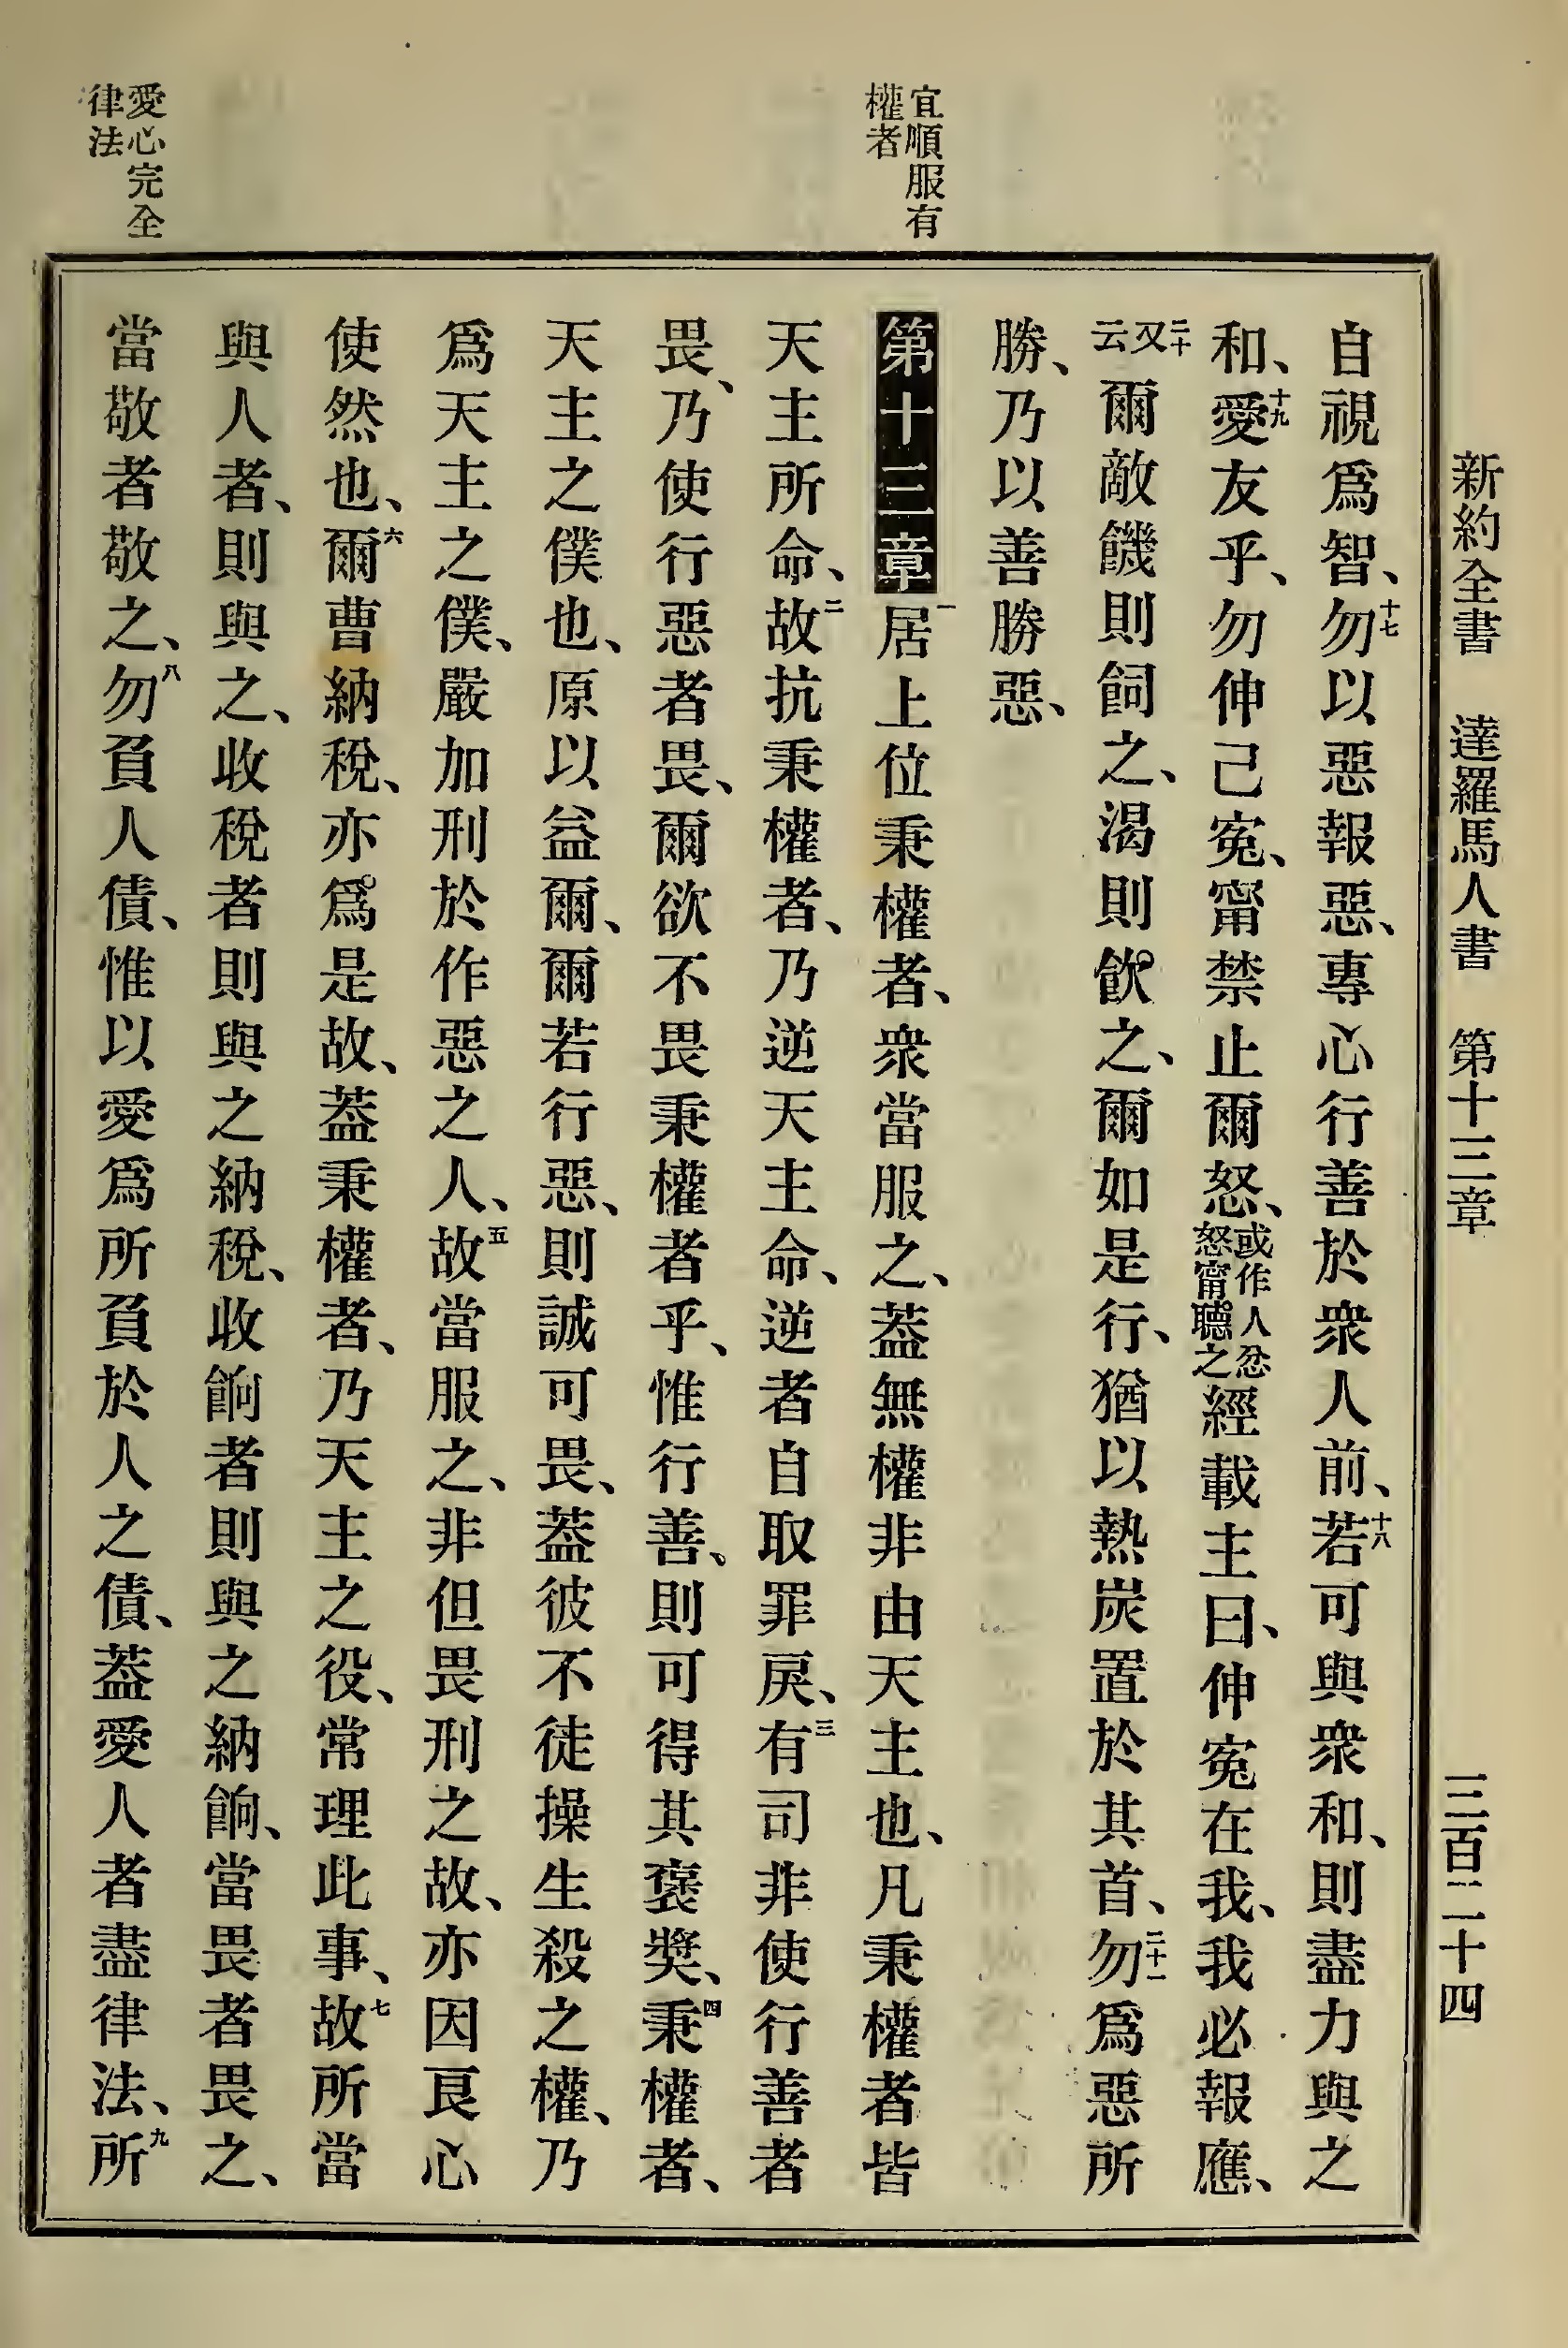 新約全書 達羅馬人書 第十三章 三百二十四
宜順服有
權者
愛心完全
律法
自視爲智、十七勿以惡報惡、專心行善於衆人前、十八若可與衆和、則盡力與之
和、十九愛友乎、勿伸己寃、甯禁止爾怒、或作人忿怒甯聽之經載主曰、伸寃在我、我必報應、
二十又云爾敵饑則飼之、渴則飮之、爾如是行、猶以熱炭置於其首、二十一勿爲惡所
勝、乃以善勝惡、
第十三章一居上位秉權者、衆當服之、葢無權非由天主也、凡秉權者皆
天主所命、二故抗秉權者、乃逆天主命、逆者自取罪戾、三有司非使行善者
畏、乃使行惡者畏、爾欲不畏秉權者乎、惟行善、則可得其褒獎、四秉權者、
天主之僕也、原以益爾、爾若行惡、則誠可畏、葢彼不徒操生殺之權、乃
爲天主之僕、嚴加刑於作惡之人、五故當服之、非但畏刑之故、亦因良心
使然也、六爾曹納稅、亦爲是故、葢秉權者、乃天主之役、常理此事、七故所當
與人者、則與之、收稅者則與之納稅、收餉者則與之納餉、當畏者畏之、
當敬者敬之、八勿負人債、惟以愛爲所負於人之債、葢愛人者盡律法、九所